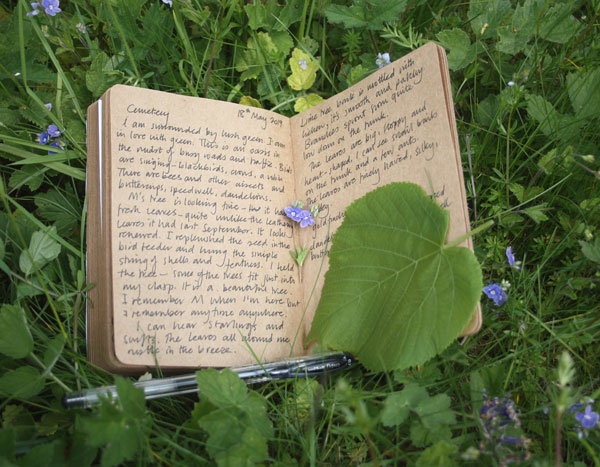 Cemetery 18th May 2019
I am surrounded by lush green. I am
in love with green. This is an oasis in
the midst of busy roads and traffic. Birds
are singing - blackbirds, crows, a
There are bees and other insects and
buttercups, speedwell, dandelions.
M's tree is looking fine - but it has
fresh leaves - quite unlike the leathery
leaves it had last September. It looks
renewed. I replenished the seed in the
bird feeder and hung the simple
string of shells and feathers. I held
the tree - some of the trees fit just into
my clasp. It is a beautiful tree.
I remember M when I'm here but
I remember anytime anywhere.
I can hear starlings and
swifts. The leaves all around me
rustle in the breeze.
trunk is mottled with
lichen, smooth and patchy
Branches sprout from quite
low down on the trunk.
The leaves are big, floppy and
heart-shaped. I can see small
on the trunk and a few ants.
The leaves are finely haired, silky,